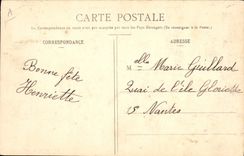 CARTE POSTALE
La Correspondance au recto n'est pas acceptée par tous les Pays Étrangers (Se renseigner à la Poste).
CORRESPONDANCE
ADRESSE
Bonne fête
Henriette
Melle Marie Guillard
Quai de l'île Gloriette
5 Nantes